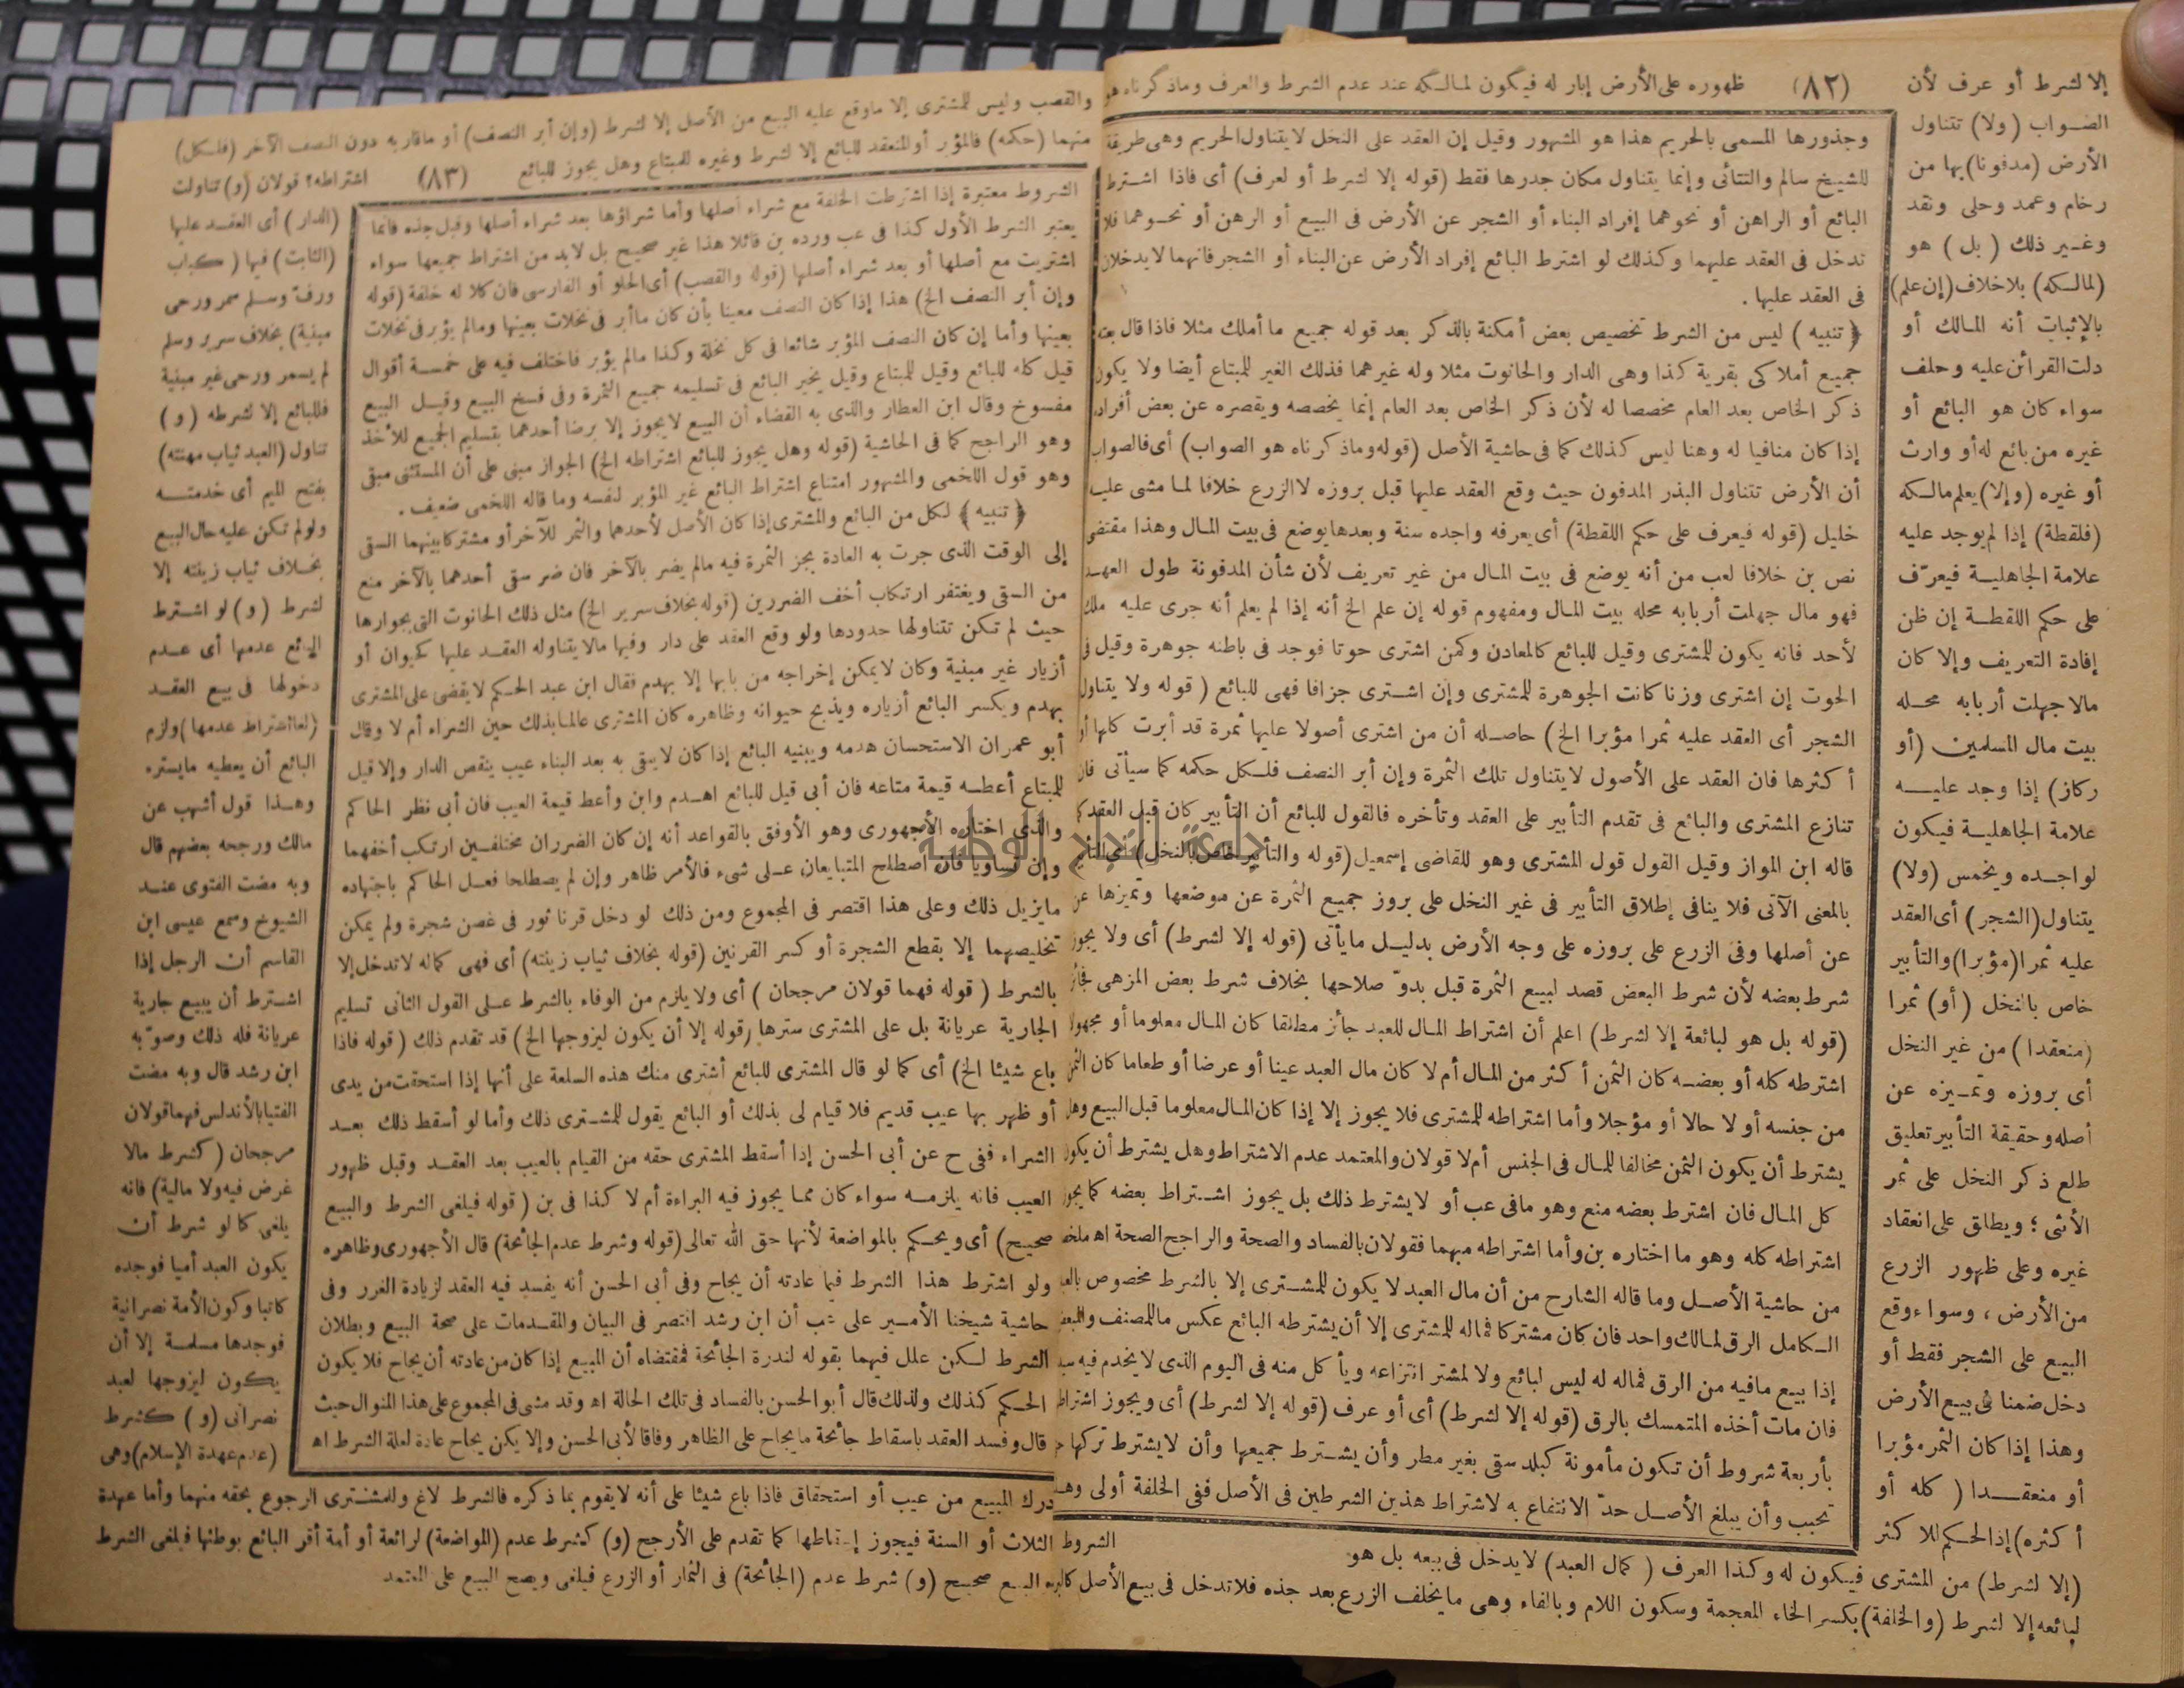 إلا لشرط أو عرف لأن (٨٢) ظهوره على الأرض إبار له فيكون لمالكه عند عدم الشرط والعرف وماذكرناه هو
الصواب (ولا) تتناول
الأرض (مدفونا) بها من
رخام وعمد وحلى ونقد
وغير ذلك (بل) هو
(لمالكه) بلاخلاف (إن علم)
بالإثبات أنه المالك أو
دلت القرائن عليه وحلف
سواء كان هو البائع أو
غيره من بائع له أو وارث
أو غيره (وإلا) يعلم مالكه
(فلقطة) إذا لم يوجد عليه
علامة الجاهلية فيعرّف
على حكم اللقطة إن ظن
إفادة التعريف وإلا كان
مالا جهلت أربابه محله
بيت مال المسلمين (أو
ركاز) إذا وجد عليه
علامة الجاهلية فيكون
لواجده ويخمس (ولا)
يتناول (الشجر) أى العقد
عليه ثمرا (مؤبرا) والتأبير
خاص بالنخل (أو) ثمرا
(منعقدا) من غير النخل
أى بروزه وتميزه عن
أصله وحقيقة التأبير تعليق
طلع ذكر النخل على ثمر
الأنثى ؛ ويطلق على انعقاد
غيره وعلى ظهور الزرع
من الأرض ، وسواء وقع
البيع على الشجر فقط أو
دخل ضمنا فى بيع الأرض
وهذا إذا كان الثمر مؤبرا
أو منعقدا (كله أو
أكثره) إذ الحكم للا كثر
(إلا لشرط) من المشترى فيكون له وكذا العرف (كمال العبد) لا يدخل فى بيعه بل هو
لبائعه إلا لشرط (والخلفة) بكسر الخاء المعجمة وسكون اللام وبالفاء وهى ما يخلف الزرع بعد جذه فلا تدخل فى بيع الأصل
وجذورها المسمى بالحريم هذا هو المشهور وقيل إن العقد على النخل لا يتناول الحريم وهى طريقة
للشيخ سالم والتتائى وإنما يتناول مكان جدرها فقط (قوله إلا لشرط أو لعرف) أى فاذا اشترط
البائع أو الراهن أو نحوهما إفراد البناء أو الشجر عن الأرض فى البيع أو الرهن أو نحوهما فلا
تدخل فى العقد عليهما وكذلك لو اشترط البائع إفراد الأرض عن البناء أو الشجر فانهما لا يدخلان
فى العقد عليها .
﴿ تنبيه ﴾ ليس من الشرط تخصيص بعض أمكنة بالذكر بعد قوله جميع ما أملك مثلا فاذا قال بعت
جميع أملاكى بقرية كذا وهى الدار والحانوت مثلا وله غيرهما فذلك الغير للمبتاع أيضا ولا يكون
ذكر الخاص بعد العام مخصصا له لأن ذكر الخاص بعد العام إنما يخصصه ويقصره عن بعض أفراده
إذا كان منافيا له وهنا ليس كذلك كما فى حاشية الأصل (قوله وماذكرناه هو الصواب) أى فالصواب
أن الأرض تتناول البذر المدفون حيث وقع العقد عليها قبل بروزه لا الزرع خلافا لما مشى عليه
خليل (قوله فيعرف على حكم اللقطة) أى يعرفه واجده سنة وبعدها يوضع فى بيت المال وهذا مقتضى
نص بن خلافا لعب من أنه يوضع فى بيت المال من غير تعريف لأن شأن المدفونة طول العهد
فهو مال جهلت أربابه محله بيت المال ومفهوم قوله إن علم الخ أنه إذا لم يعلم أنه جرى عليه ملك
لأحد فانه يكون للمشترى وقيل للبائع كالمعادن وكمن اشترى حوتا فوجد فى باطنه جوهرة وقيل فى
الحوت إن اشترى وزنا كانت الجوهرة للمشترى وإن اشترى جزافا فهى للبائع (قوله ولا يتناول
الشجر أى العقد عليه ثمرا مؤبرا الخ) حاصله أن من اشترى أصولا عليها ثمرة قد أبرت كلها أو
أكثرها فان العقد على الأصول لا يتناول تلك الثمرة وإن أبر النصف فلكل حكمه كما سيأتى فان
تنازع المشترى والبائع فى تقدم التأبير على العقد وتأخره فالقول للبائع أن التأبير كان قبل العقد كما
قاله ابن المواز وقيل القول قول المشترى وهو للقاضى إسمعيل (قوله والتأبير خاص بالنخل) أى التأبير
بالمعنى الآتى فلا ينافى إطلاق التأبير فى غير النخل على بروز جميع الثمرة عن موضعها وتميزها عن
عن أصلها وفى الزرع على بروزه على وجه الأرض بدليل مايأتى (قوله إلا لشرط) أى ولا يجوز
شرط بعضه لأن شرط البعض قصد لبيع الثمرة قبل بدوّ صلاحها بخلاف شرط بعض المزهى فجائز
(قوله بل هو لبائعة إلا لشرط) اعلم أن اشتراط المال للعبد جائز مطلقا كان المال معلوما أو مجهولا
اشترطه كله أو بعضه كان الثمن أكثر من المال أم لا كان مال العبد عينا أو عرضا أو طعاما كان الثمن
من جنسه أو لا حالا أو مؤجلا وأما اشتراطه للمشترى فلا يجوز إلا إذا كان المال معلوما قبل البيع وهل
يشترط أن يكون الثمن مخالفا للمال فى الجنس أم لا قولان والمعتمد عدم الاشتراط وهل يشترط أن يكون
كل المال فان اشترط بعضه منع وهو مافى عب أو لا يشترط ذلك بل يجوز اشتراط بعضه كما يجوز
اشتراطه كله وهو ما اختاره بن وأما اشتراطه مبهما فقولان بالفساد والصحة والراجح الصحة اه ملخصا
من حاشية الأصل وما قاله الشارح من أن مال العبد لا يكون للمشترى إلا بالشرط مخصوص بالعبد
الكامل الرق لمالك واحد فان كان مشتركا فماله للمشترى إلا أن يشترطه البائع عكس ما للمصنف والمبعض
إذا بيع مافيه من الرق فماله له ليس لبائع ولا لمشتر انتزاعه ويأكل منه فى اليوم الذى لا يخدم فيه سيده
فان مات أخذه المتمسك بالرق (قوله إلا لشرط) أى أو عرف (قوله إلا لشرط) أى ويجوز اشتراطها
بأربعة شروط أن تكون مأمونة كبلد سقى بغير مطر وأن يشترط جميعها وأن لا يشترط تركها
تحبب وأن يبلغ الأصل حدّ الانتفاع به لاشتراط هذين الشرطين فى الأصل ففى الخلفة أولى وهذه
الشروط
والقصب وليس للمشترى إلا ماوقع عليه البيع من الأصل إلا لشرط (وإن أبر النصف) أو ماقاربه دون النصف الآخر (فلكل)
منهما (حكمه) فالمؤبر أو المنعقد للبائع إلا لشرط وغيره للمبتاع وهل يجوز للبائع (٨٣) اشتراطه؟ قولان (و) تناولت
(الدار) أى العقد عليها
(الثابت) فيها (كباب
ورفّ وسلم سمر ورحى
مبنية) بخلاف سرير وسلم
لم يسمر ورحى غير مبنية
فللبائع إلا لشرطه (و)
تناول (العبد ثياب مهنته)
بفتح الميم أى خدمته
ولو لم تكن عليه حال البيع
بخلاف ثياب زينته إلا
لشرط (و) لو اشترط
البائع عدمها أى عدم
دخولها فى بيع العقد
(لغا اشتراط عدمها) ولزم
البائع أن يعطيه مايستره
وهذا قول أشهب عن
مالك ورجحه بعضهم قال
وبه مضت الفتوى عند
الشيوخ وسمع عيسى ابن
القاسم أن الرجل إذا
اشترط أن يبيع جارية
عريانة فله ذلك وصوّبه
ابن رشد قال وبه مضت
الفتيا بالأندلس فهما قولان
مرجحان (كشرط مالا
غرض فيه ولا مالية) فانه
يلغى كما لو شرط أن
يكون العبد أميا فوجده
كاتبا وكون الأمة نصرانية
فوجدها مسلمة إلا أن
يكون ليزوجها لعبد
نصرانى (و) كشرط
(عدم عهدة الإسلام) وهى
درك المبيع من عيب أو استحقاق فاذا باع شيئا على أنه لا يقوم بما ذكره فالشرط لاغ وللمشترى الرجوع بحقه منهما وأما عهدة
الثلاث أو السنة فيجوز إسقاطها كما تقدم على الأرجح (و) كشرط عدم (المواضعة) لرائعة أو أمة أقر البائع بوطئها فيلغى الشرط
البيع صحيح (و) شرط عدم (الجائحة) فى الثمار أو الزرع فيلغى ويصح البيع على المعتمد
الشروط معتبرة إذا اشترطت الخلفة مع شراء أصلها وأما شراؤها بعد شراء أصلها وقبل جذه فانما
يعتبر الشرط الأول كذا فى عب ورده بن قائلا هذا غير صحيح بل لابد من اشتراط جميعها سواء
اشتريت مع أصلها أو بعد شراء أصلها (قوله والقصب) أى الحلو أو الفارسى فان كلا له خلفة (قوله
وإن أبر النصف الخ) هذا إذا كان النصف معينا بأن كان ماأبر فى نخلات بعينها ومالم يؤبر فى نخلات
بعينها وأما إن كان النصف المؤبر شائعا فى كل نخلة وكذا مالم يؤبر فاختلف فيه على خمسة أقوال
قيل كله للبائع وقيل للمبتاع وقيل يخير البائع فى تسليمه جميع الثمرة وفى فسخ البيع وقيل البيع
مفسوخ وقال ابن العطار والذى به القضاء أن البيع لا يجوز إلا برضا أحدهما بتسليم الجميع للأخذ
وهو الراجح كما فى الحاشية (قوله وهل يجوز للبائع اشتراطه الخ) الجواز مبنى على أن المستثنى مبقى
وهو قول اللخمى والمشهور امتناع اشتراط البائع غير المؤبر لنفسه وما قاله اللخمى ضعيف .
﴿ تنبيه ﴾ لكل من البائع والمشترى إذا كان الأصل لأحدهما والثمر للآخر أو مشتركا بينهما السقى
إلى الوقت الذى جرت به العادة بجز الثمرة فيه مالم يضر بالآخر فان ضر سقى أحدهما بالآخر منع
من السقى ويغتفر ارتكاب أخف الضررين (قوله بخلاف سرير الخ) مثل ذلك الحانوت التى بجوارها
حيث لم تكن تتناولها حدودها ولو وقع العقد على دار وفيها مالا يتناوله العقد عليها كحيوان أو
أزيار غير مبنية وكان لا يمكن إخراجه من بابها إلا بهدم فقال ابن عبد الحكم لا يقضى على المشترى
بهدم ويكسر البائع أزياره ويذبح حيوانه وظاهره كان المشترى عالما بذلك حين الشراء أم لا وقال
أبو عمران الاستحسان هدمه ويبنيه البائع إذا كان لا يبقى به بعد البناء عيب ينقص الدار وإلا قيل
للمبتاع أعطه قيمة متاعه فان أبى قيل للبائع اهدم وابن وأعط قيمة العيب فان أبى نظر الحاكم
والذى اختاره الأجهورى وهو الأوفق بالقواعد أنه إن كان الضرران مختلفين ارتكب أخفهما
وإن تساويا فان اصطلح المتبايعان على شىء فالأمر ظاهر وإن لم يصطلحا فعل الحاكم باجتهاده
مايزيل ذلك وعلى هذا اقتصر فى المجموع ومن ذلك لو دخل قرنا ثور فى غصن شجرة ولم يمكن
تخليصهما إلا بقطع الشجرة أو كسر القرنين (قوله بخلاف ثياب زينته) أى فهى كماله لا تدخل إلا
بالشرط (قوله فهما قولان مرجحان) أى ولا يلزم من الوفاء بالشرط على القول الثانى تسليم
الجارية عريانة بل على المشترى سترها (قوله إلا أن يكون ليزوجها الخ) قد تقدم ذلك (قوله فاذا
باع شيئا الخ) أى كما لو قال المشترى للبائع أشترى منك هذه السلعة على أنها إذا استحقت من يدى
أو ظهر بها عيب قديم فلا قيام لى بذلك أو البائع يقول للمشترى ذلك وأما لو أسقط ذلك بعد
الشراء ففى ح عن أبى الحسن إذا أسقط المشترى حقه من القيام بالعيب بعد العقد وقبل ظهور
العيب فانه يلزمه سواء كان مما يجوز فيه البراءة أم لا كذا فى بن (قوله فيلغى الشرط والبيع
صحيح) أى ويحكم بالمواضعة لأنها حق الله تعالى (قوله وشرط عدم الجائحة) قال الأجهورى وظاهره
ولو اشترط هذا الشرط فيما عادته أن يجاح وفى أبى الحسن أنه يفسد فيه العقد لزيادة الغرر وفى
حاشية شيخنا الأمير على عب أن ابن رشد انتصر فى البيان والمقدمات على صحة البيع وبطلان
الشرط لكن علل فيهما بقوله لندرة الجائحة فمقتضاه أن المبيع إذا كان من عادته أن يجاح فلا يكون
الحكم كذلك ولذلك قال أبو الحسن بالفساد فى تلك الحالة اه وقد مشى فى المجموع على هذا المنوال حيث
قال وفسد العقد باسقاط جائحة مايجاح على الظاهر وفاقا لأبى الحسن وإلا يكن يجاح عادة لعلة الشرط اه
جامعة النجاح الوطنية